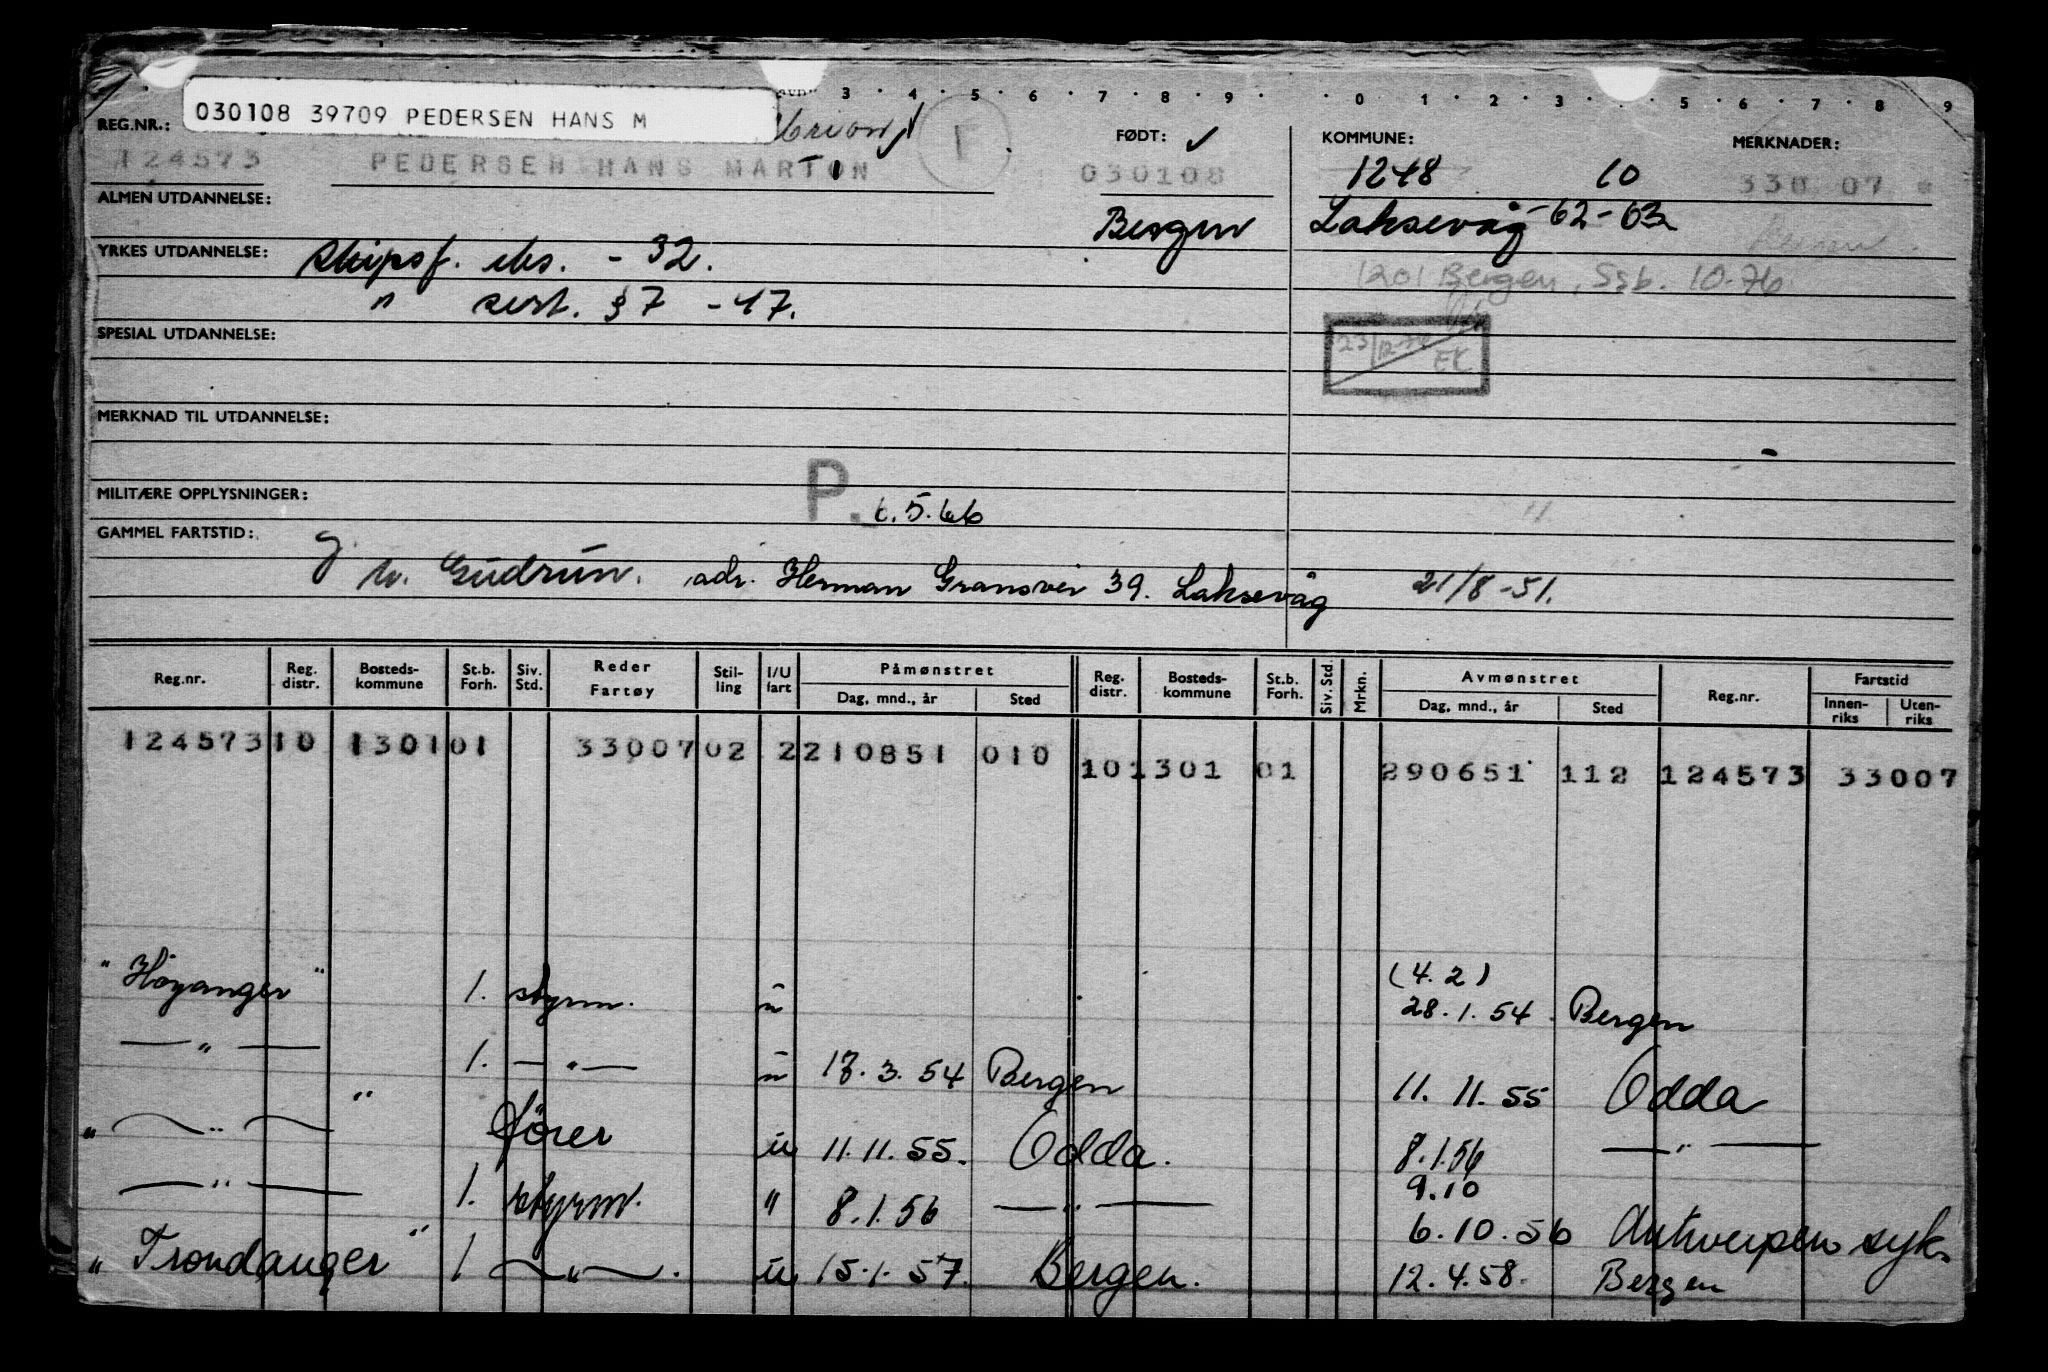 030108 39709 PEDERSEN HANS M
3 · 4 · 5 · 6 · 7 · 8 · 9 · · 0 · 1 · 2 · 3 · 5 · 6 · 7 · 8 9
REG.NR.: F FØDT: ✓ KOMMUNE: MERKNADER:
124573 PEDERSEN HANS MARTON 030108 1248 10 330 07
ALMEN UTDANNELSE: Bergen Laksevåg -62-63
YRKES UTDANNELSE: skipsf. eks. - 32.
1201 Bergen, Ssb. 10-76
" sert. §7 - 47.
SPESIAL UTDANNELSE: EK
MERKNAD TIL UTDANNELSE:
MILITÆRE OPPLYSNINGER: P. 6.5.66
GAMMEL FARTSTID:
g h. Gudrun. adr. Herman Gransvei 39. Laksevåg 21/8-51.
Reg.nr. Reg. distr. Bosteds-kommune St.b. Forh. Siv. Std. Reder Fartøy Stil-ling I/U fart Påmønstret Dag, mnd., år Sted Reg. distr. Bosteds-kommune St.b. Forh. Siv. Std. Mrkn. Avmønstret Dag, mnd., år Sted Reg.nr. Fartstid Innen-riks Uten-riks
124573 10 1301 01 33007 02 2 210851 010 10 1301 01 290651 112 124573 33007
(4.2)
"Höyanger" 1. styrm. u 28.1.54 Bergen
— " — 1. — " — u 3.54 Bergen 11.11.55 Odda
" — " — " fører u 11.11.55. Odda. 8.1.56 — " —
9.10
— " — 1. styrm. " 8.1.56 — " — 6.10.56 Antwerpen syk.
"Trondanger" 1 — " — . u 15.1.57. Bergen. 12.4.58. Bergen